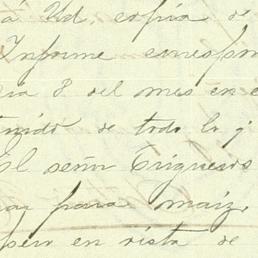 á Ud. copia de
Informe correspon
dia 8 del mes en c
tenido de todo lo q
El señor Trigueros
para maiz,
pero en vista de